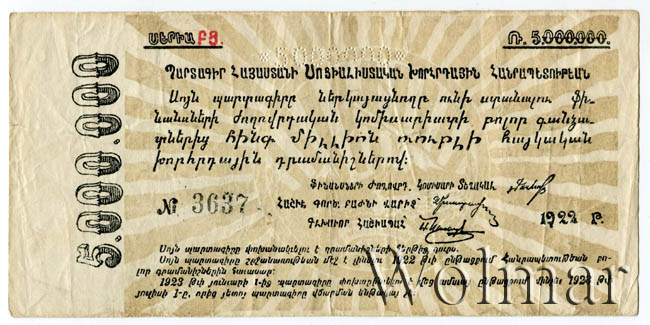 ՍԵՐԻԱ ԲՅ.
Ռ. 5.000.000.
5000000
5.000.000
ՊԱՐՏԱԳԻՐ ՀԱՅԱՍՏԱՆԻ ՍՈՑԻԱԼԻՍՏԱԿԱՆ ԽՈՐՀՐԴԱՅԻՆ ՀԱՆՐԱՊԵՏՈՒԹԵԱՆ
Սոյն պարտագիրը ներկայացնողը ունի ստանալու ֆի-
նանսների ժողովրդական կոմիսարիատի բոլոր գանձա-
րաններից հինգ միլլիոն ռուբլի հայկական
խորհրդային դրամանիշներով:
ՖԻՆԱՆՍՆԵՐԻ ԺՈՂՈՎՐԴ. ԿՈՄԻՍԱՐԻ ՏԵՂԱԿԱԼ
№ 3637
ՀԱՇԻՒ ԳՈՐԾ. ԲԱԺՆԻ ՎԱՐԻՉ
ԳԼԽԱՒՈՐ ՀԱՇՈՒԱՊԱՀ
1922 Թ.
Սոյն պարտագիրը փոխանակելու է դրամանիշների հերթից դուրս.
Սոյն պարտագիրը շրջանառութեան մէջ է լինելու 1922 թուի ընթացքում Հանրապետութեան բո-
լոր դրամանիշներին հաւասար:
1923 թուի յունուարի 1-ից պարտագիրը փոխարինելու ընթացքում մինչև 1923 թուի
յուլիսի 1-ը, որից յետոյ պարտագիրը վճարման ենթակայ չէ.
Wolmar